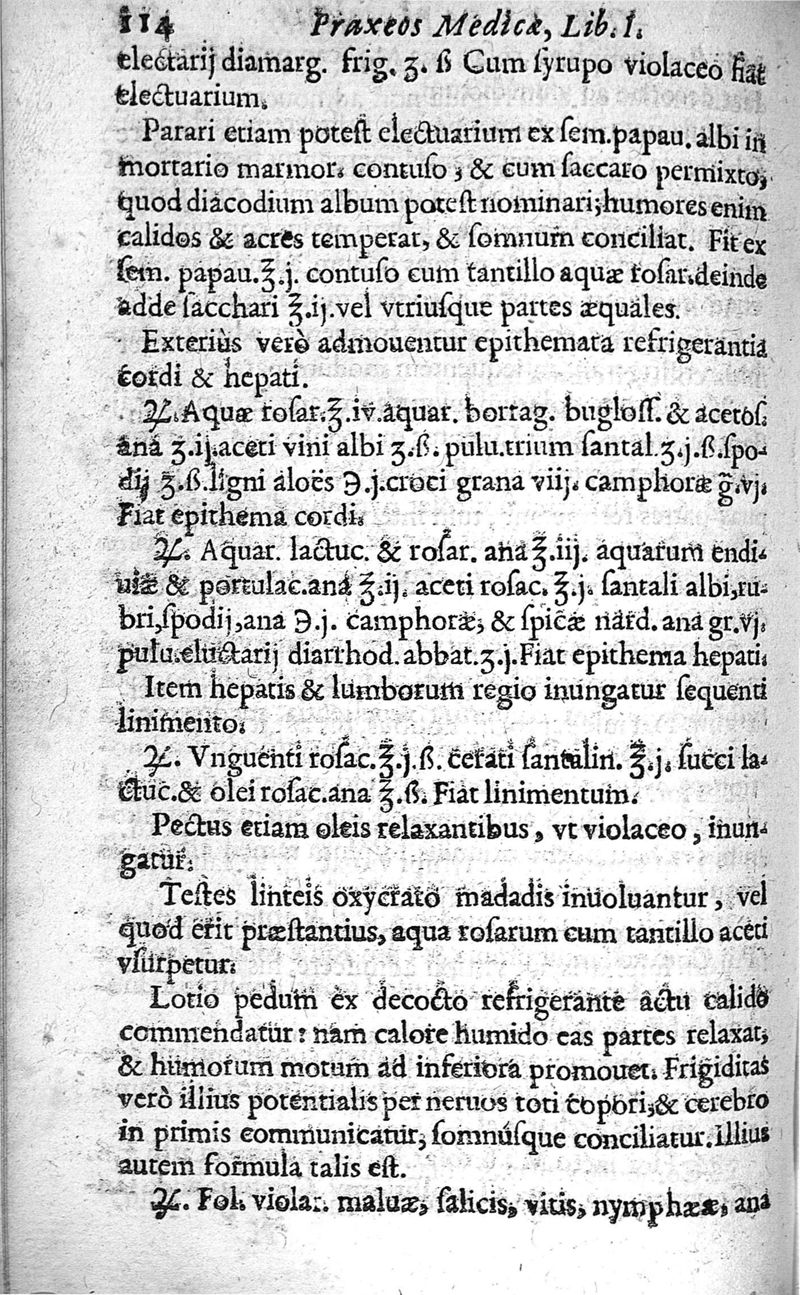 114 Praxeos Medicæ, Lib. I.
electarij diamarg. frig. ʒ. ß Cum ſyrupo violaceo fiat
electuarium.
Parari etiam poteſt electuarium ex ſem. papau. albi in
mortario marmor. contuſo ; & cum ſaccaro permixto,
quod diacodium album poteſt nominari; humores enim
calidos & acres temperat, & ſomnum conciliat. Fit ex
ſem. papau. ℥.j. contuſo cum tantillo aquæ roſar. deinde
adde ſacchari ℥.ij. vel vtriuſque partes æquales.
Exteriùs verò admouentur epithemata refrigerantia
cordi & hepati.
♃. Aquæ roſar. ℥.iv. aquar. borrag. bugloſſ. & acetoſ.
ana ℥.ij. aceti vini albi ʒ.ß. pulu. trium ſantal. ʒ.j.ß. ſpo-
dij ℥.ß. ligni aloës ℈.j. croci grana viij. camphoræ g̃.vj.
Fiat epithema cordi.
♃. Aquar. lactuc. & roſar. ana ℥.iij. aquarum endi-
uiæ & portulac. ana ℥.ij. aceti roſac. ℥.j. ſantali albi, ru-
bri, ſpodij, ana ℈.j. camphoræ, & ſpicæ nard. ana gr. vj.
pulu. eluctarij diarrhod. abbat. ʒ.j. Fiat epithema hepati.
Item hepatis & lumborum regio inungatur ſequenti
linimento.
♃. Vnguenti roſac. ℥.j.ß. cerati ſantalin. ℥.j. ſucci la-
ctuc. & olei roſac. ana ℥.ß. Fiat linimentum.
Pectus etiam oleis relaxantibus, vt violaceo, inun-
gatur.
Teſtes linteis oxycrato madadis inuoluantur, vel
quod erit præſtantius, aqua roſarum cum tantillo aceti
vſurpetur.
Lotio pedum ex decocto refrigerante actu calido
commendatur: nam calore humido eas partes relaxat,
& humorum motum ad inferiora promouet. Frigiditas
verò illius potentialis per neruos toti copori, & cerebro
in primis communicatur, ſomnúſque conciliatur. Illius
autem formula talis eſt.
♃. Fol. violar. maluæ, ſalicis, vitis, nymphææ, ana